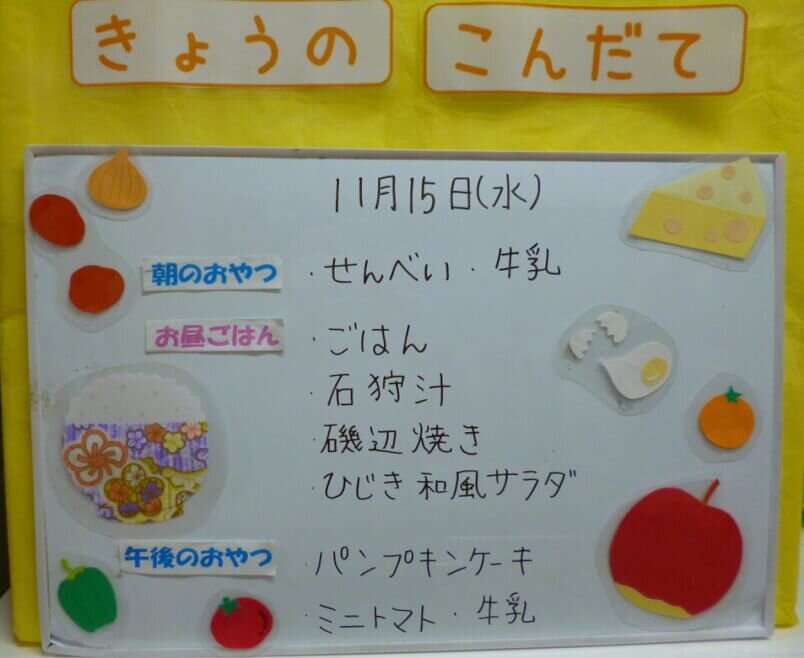 きょうの こんだて
11月15日(水)
朝のおやつ ・せんべい ・牛乳
お昼ごはん ・ごはん
・石狩汁
・磯辺焼き
・ひじき和風サラダ
午後のおやつ ・パンプキンケーキ
・ミニトマト・牛乳